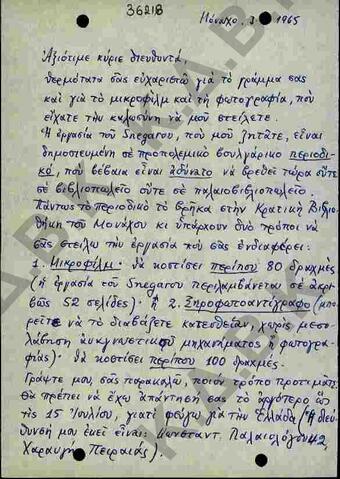 36218
Μόναχο, 1965
Ἀξιότιμε κύριε διευθυντά,
θερμότατα σᾶς εὐχαριστῶ γιὰ τὸ γράμμα σας
καὶ γιὰ τὸ μικροφὶλμ καὶ τὴ φωτογραφία, ποὺ
εἴχατε τὴν καλωσύνη νὰ μοῦ στείλετε.
Ἡ ἐργασία τοῦ Snegarov, ποὺ μοῦ ζητᾶτε, εἶναι
δημοσιευμένη σὲ προπολεμικὸ βουλγάρικο περιοδι-
κό, ποὺ βέβαια εἶναι ἀδύνατο νὰ βρεθεῖ τώρα οὔτε
σὲ βιβλιοπωλεῖο οὔτε σὲ παλαιοβιβλιοπωλεῖο.
Πάντως τὸ περιοδικὸ τὸ βρῆκα στὴν Κρατικὴ Βιβλιο-
θήκη τοῦ Μονάχου κι ὑπάρχουν δυὸ τρόποι νὰ
σᾶς στείλω τὴν ἐργασία ποὺ σᾶς ἐνδιαφέρει:
1. Μικροφίλμ· θὰ κοστίσει περίπου 80 δραχμὲς
(ἡ ἐργασία τοῦ Snegarov περιλαμβάνεται σὲ ἀκρι-
βῶς 52 σελίδες)· ἢ 2. Ξηροφωτοαντίγραφο (μπο-
ρεῖτε νὰ τὸ διαβάζετε κατευθεῖαν, χωρὶς μεσο-
λάβηση ἀναγνωστικοῦ μηχανήματος ἢ φωτογρα-
φίας)· θὰ κοστίσει περίπου 100 δραχμές.
Γράψτε μου, σᾶς παρακαλῶ, ποιον τρόπο προτιμᾶτε.
Θὰ πρέπει νὰ ἔχω ἀπάντησή σας τὸ ἀργότερο ὣς
τὶς 15 Ἰουλίου, γιατὶ φεύγω γιὰ τὴν Ἑλλάδα (Ἡ διεύ-
θυνσή μου ἐκεῖ εἶναι: Κωνσταντ. Παλαιολόγου 42,
Χαραυγὴ Πειραιάς).